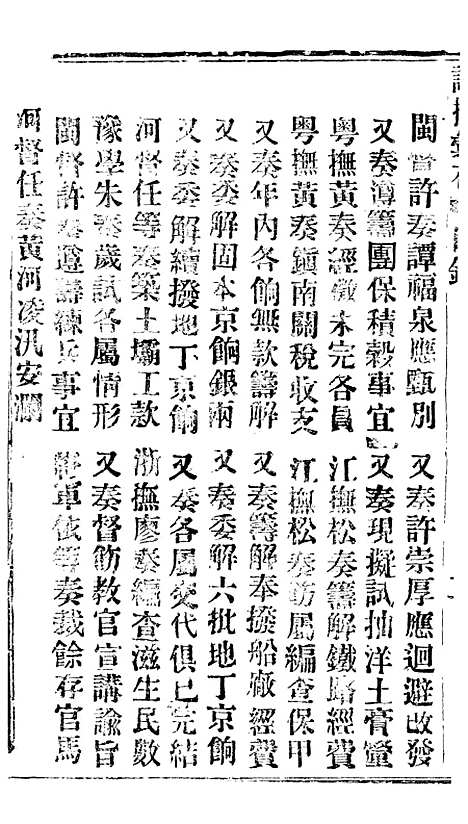 閩督許奏譚福泉應甄別
又奏許崇厚應迴避改發
又奏遵籌團保積穀事宜
又奏現擬試抽洋土膏釐
粵撫黃奏經徵未完各員
江撫松奏籌解鐵路經費
粵撫黃奏鎮南關稅收支
江撫松奏飭屬編查保甲
又奏年內各餉無款籌解
又奏籌解奉撥船廠經費
又奏委解固本京餉銀兩
又奏委解六批地丁京餉
又奏委解續撥地丁京餉
又奏各屬交代俱已完結
河督任等奏築土壩工款
浙撫廖奏編查滋生民數
豫學朱奏歲試各屬情形
又奏督飭教官宣講諭旨
閩督許奏遵籌練兵事宜
軍依等奏裁餘存官馬
河督任奏黃河凌汛安瀾